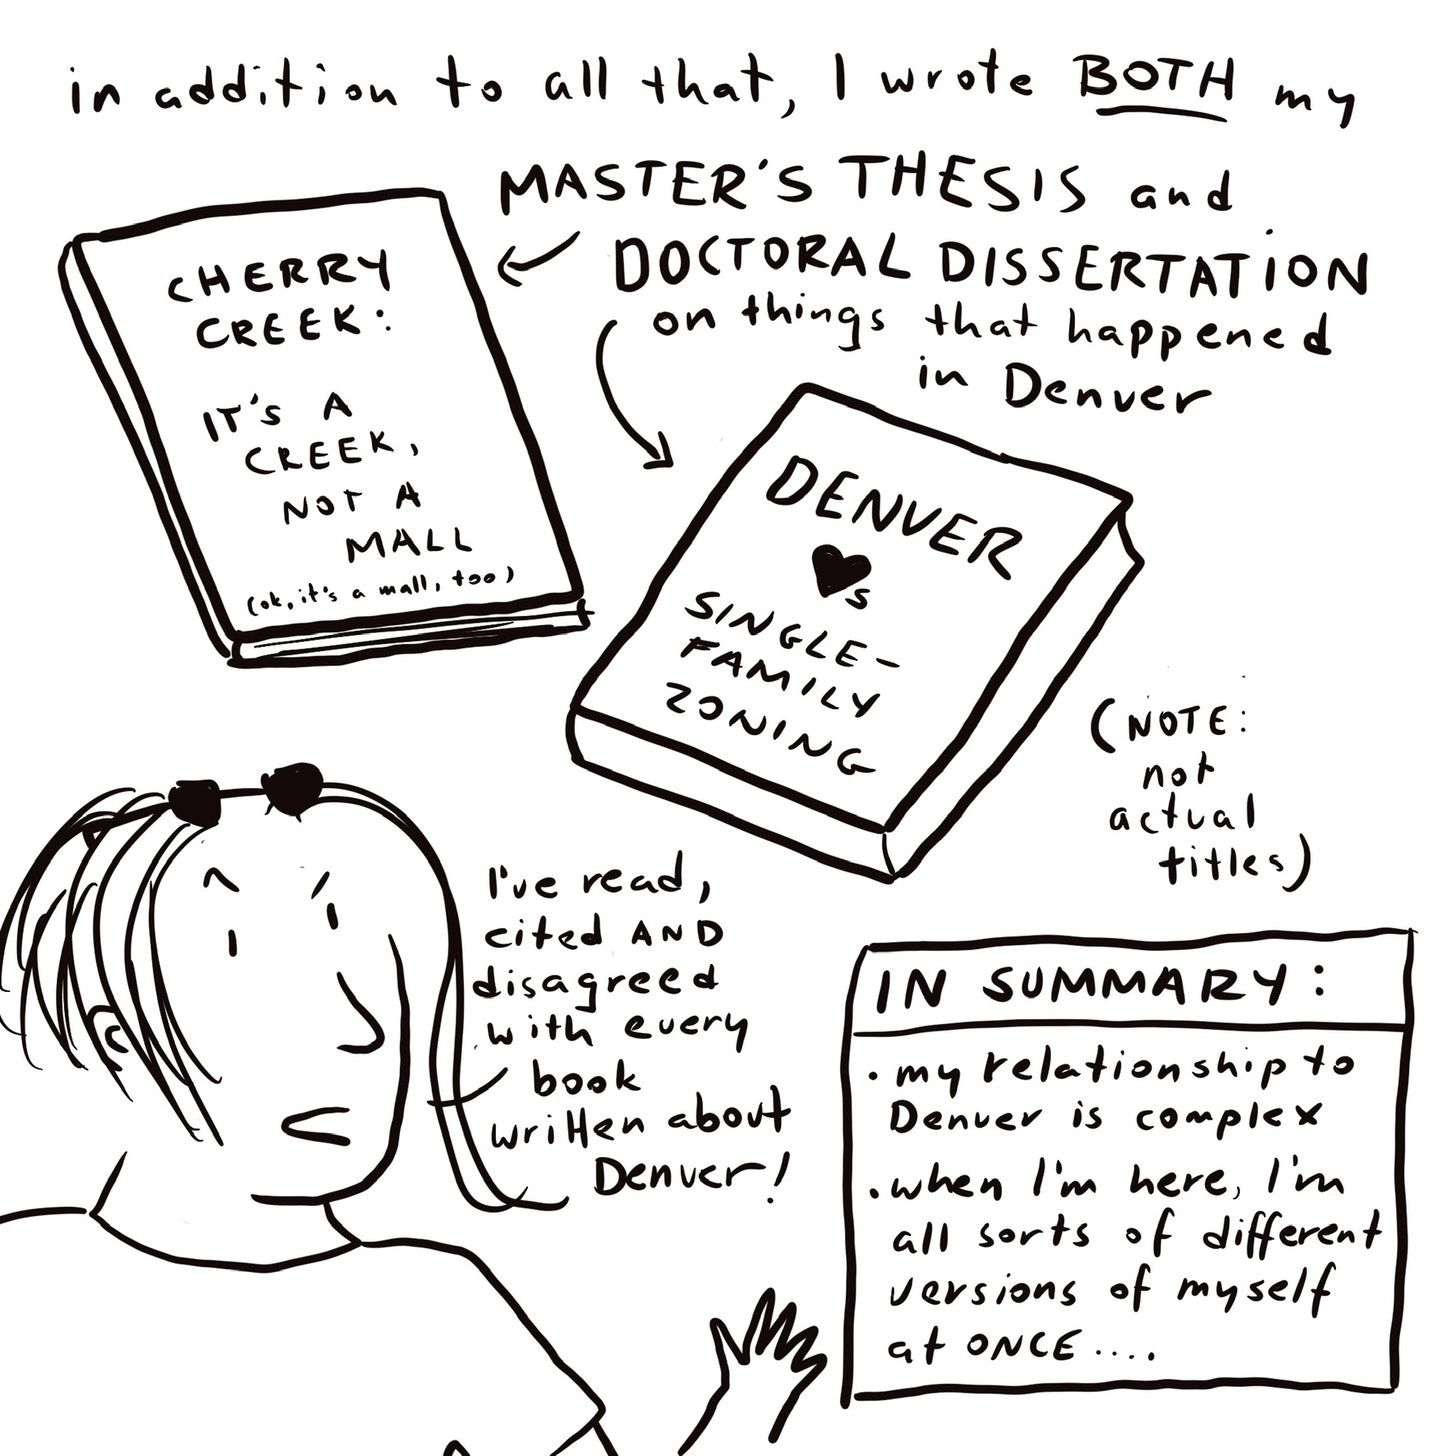 in addition to all that, I wrote BOTH my
MASTER'S THESIS and
DOCTORAL DISSERTATION
on things that happened
in Denver
CHERRY
CREEK:
IT'S A
CREEK,
NOT A
MALL
(ok, it's a mall, too)
DENVER
♥s
SINGLE-
FAMILY
ZONING
(NOTE:
not
actual
titles)
I've read,
cited AND
disagreed
with every
book
written about
Denver!
IN SUMMARY:
• my relationship to
Denver is complex
• when I'm here, I'm
all sorts of different
versions of myself
at ONCE....